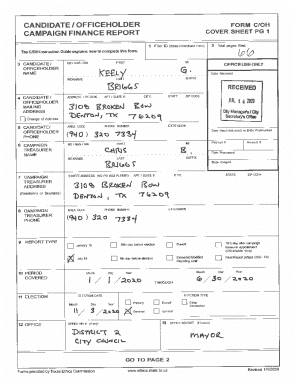 CANDIDATE / OFFICEHOLDER
CAMPAIGN FINANCE REPORT
FORM C/OH
COVER SHEET PG 1
The C/OH Instruction Guide explains how to complete this form.
1 Filer ID
2 Total pages filed:
66
3 CANDIDATE /
OFFICEHOLDER
NAME
FIRST
MI
KEELY
G.
LAST
SUFFIX
BRIGGS
OFFICE USE ONLY
Date Received
RECEIVED
City Manager's / City
Secretary's Office
4 CANDIDATE /
OFFICEHOLDER
MAILING
ADDRESS
Change of Address
ADDRESS / PO BOX; APT / SUITE #; CITY; STATE; ZIP CODE
3108 BROKEN BOW
DENTON, TX 76209
5 CANDIDATE /
OFFICEHOLDER
PHONE
AREA CODE PHONE NUMBER EXTENSION
(940) 320 7334
Date Hand-delivered or Date Postmarked
Receipt # Amount $
Date Processed
Date Imaged
6 CAMPAIGN
TREASURER
NAME
MS / MRS / MR FIRST MI
CHRIS
B.
NICKNAME LAST SUFFIX
BRIGGS
7 CAMPAIGN
TREASURER
ADDRESS
(Residence or Business)
STREET ADDRESS (NO PO BOX PLEASE); APT / SUITE #; CITY; STATE; ZIP CODE
3108 BROKEN BOW
DENTON, TX 76209
8 CAMPAIGN
TREASURER
PHONE
AREA CODE PHONE NUMBER EXTENSION
(940) 320 7334
9 REPORT TYPE
January 15
30th day before election
Runoff
15th day after campaign
treasurer appointment
(Officeholder Only)
July 15
8th day before election
Exceeded Modified
Reporting Limit
Final Report (Attach C/OH - FR)
10 PERIOD
COVERED
Month Day Year
1 / 1 / 2020
THROUGH
Month Day Year
6 / 30 / 2020
11 ELECTION
ELECTION DATE
Month Day Year
11 / 3 / 2020
ELECTION TYPE
Primary
Runoff
Other
General
Special
12 OFFICE
OFFICE HELD (if any)
DISTRICT 2
CITY COUNCIL
13 OFFICE SOUGHT (if known)
MAYOR
GO TO PAGE 2
Forms provided by Texas Ethics Commission
www.ethics.state.tx.us